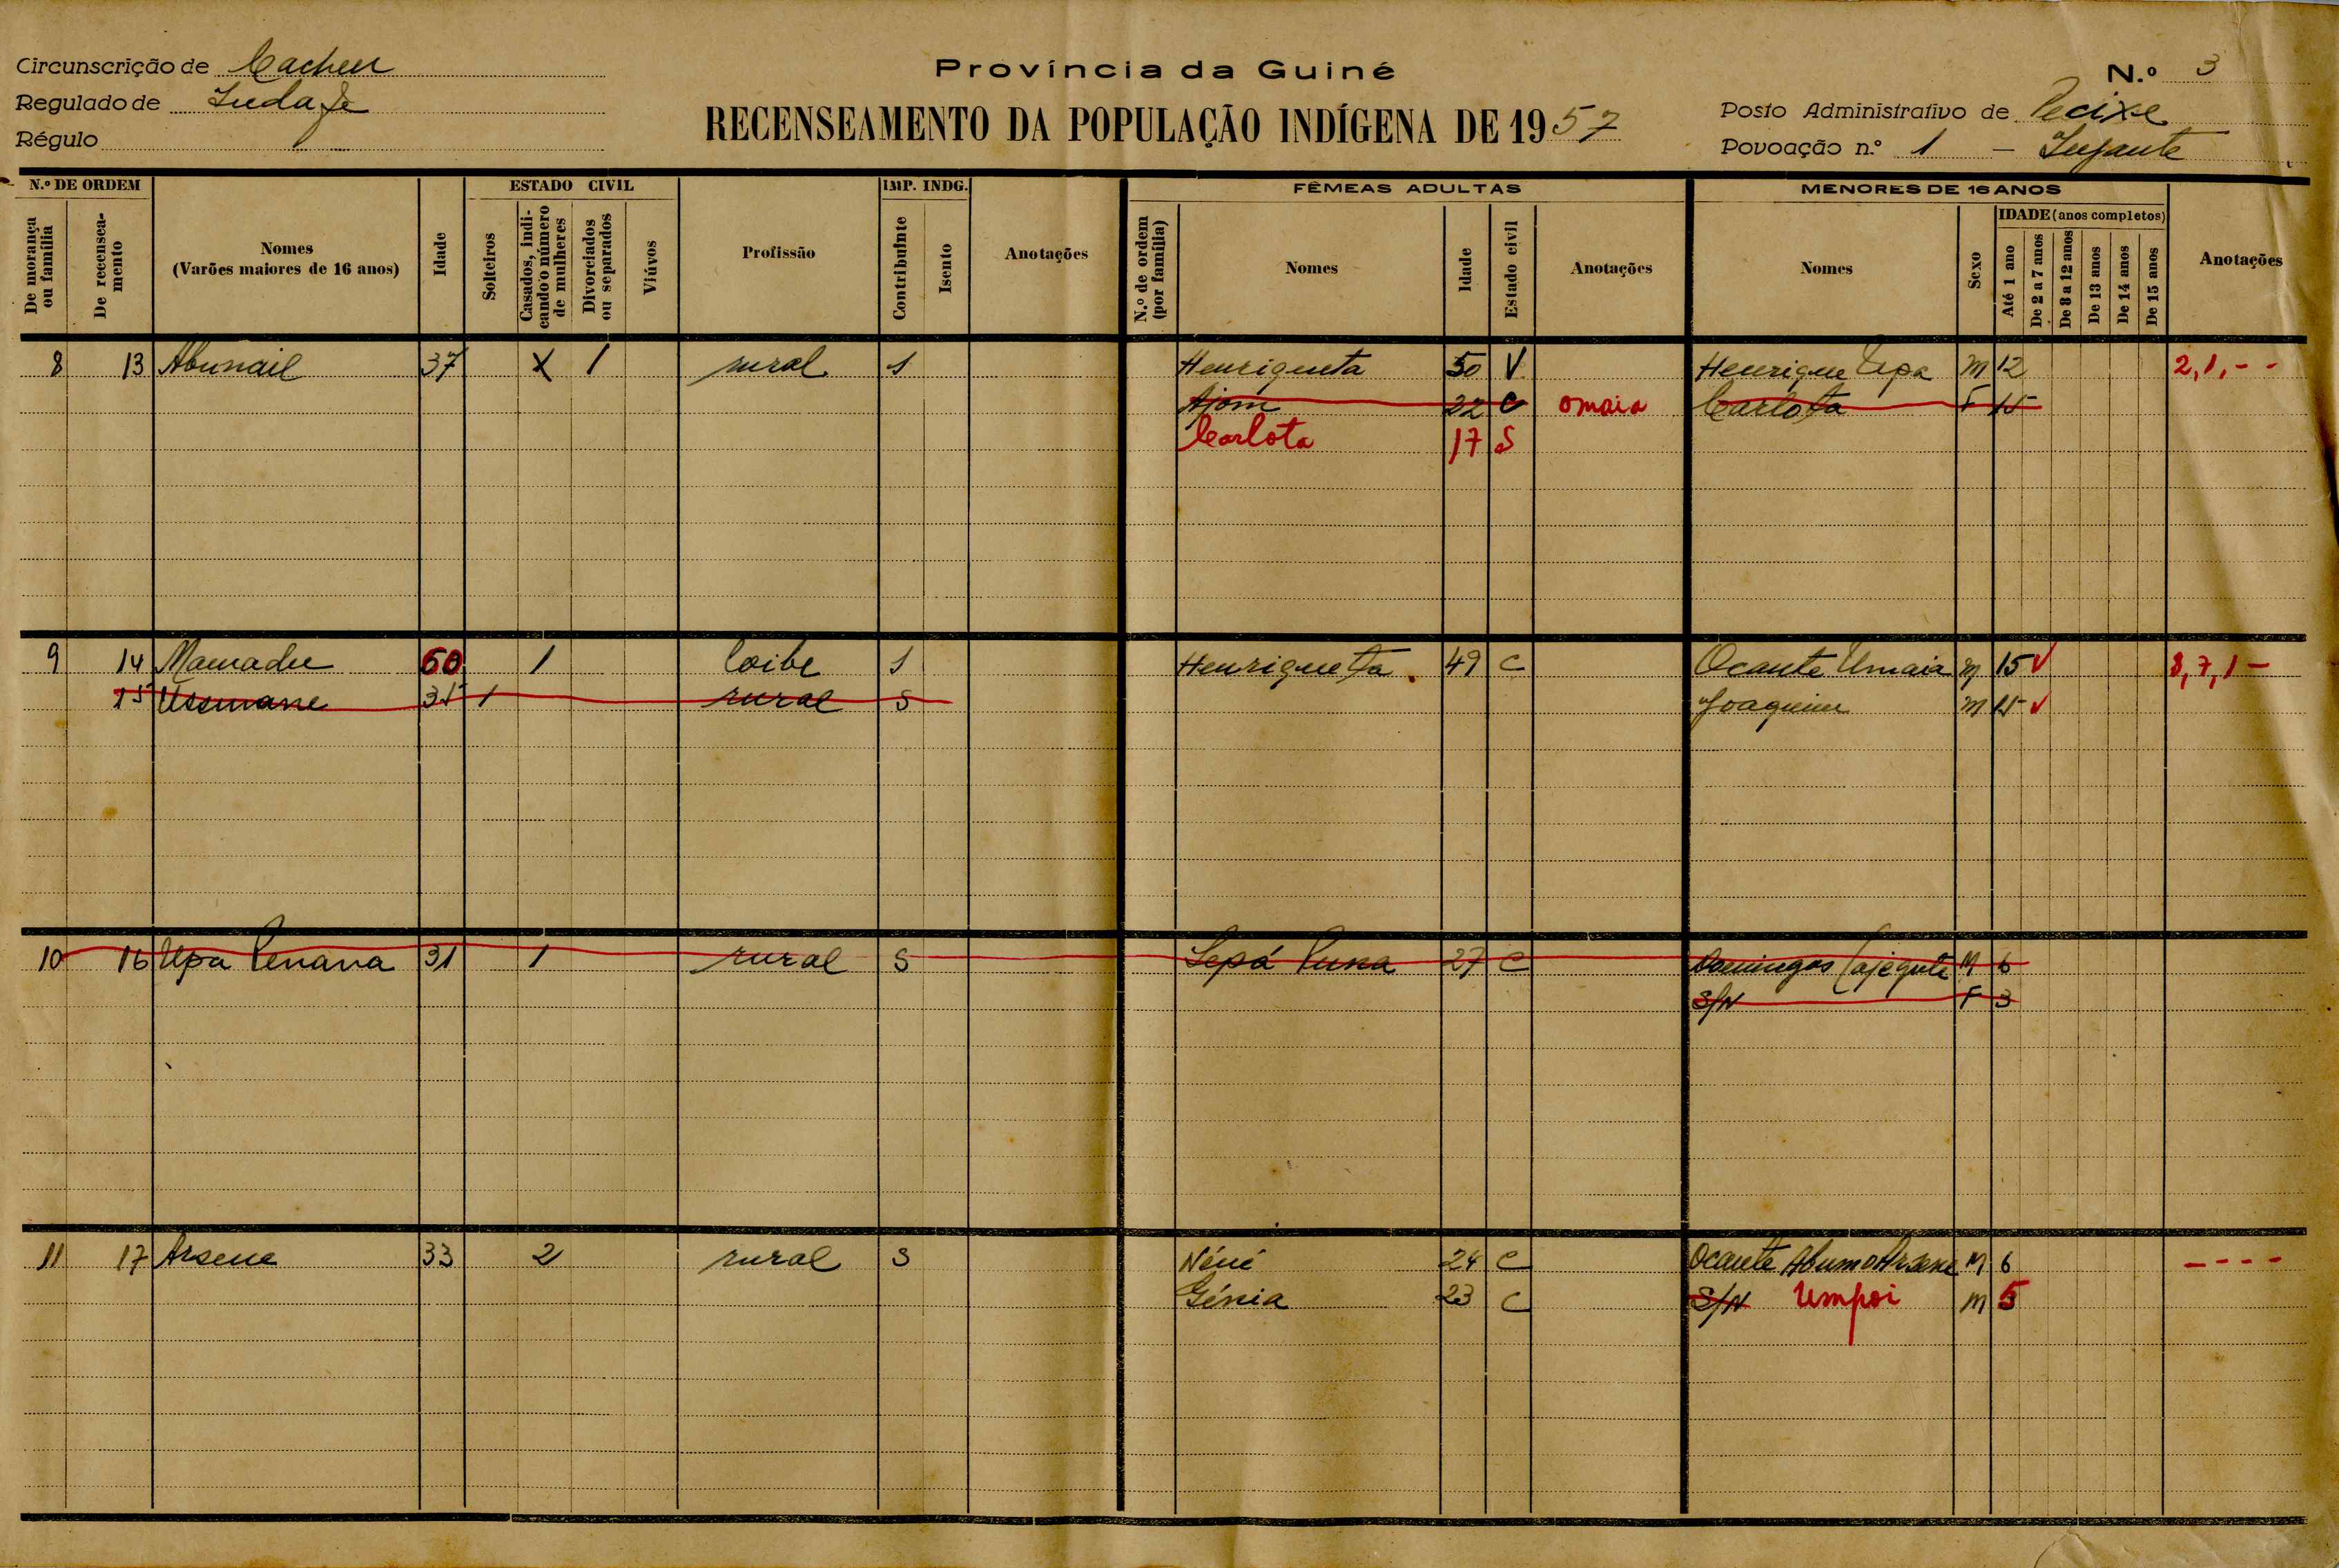 Circunscrição de Cacheu
Regulado de
Régulo
Província da Guiné
RECENSEAMENTO DA POPULAÇÃO INDÍGENA DE 1957
N.º 3
Posto Administrativo de Pecixe
Povoação n.º 1 –
N.º DE ORDEM
De morança ou família
De recenseamento
Nomes
(Varões maiores de 16 anos)
Idade
ESTADO CIVIL
Solteiros
Casados, indicando o número de mulheres
Divorciados ou separados
Viúvos
Profissão
IMP. INDG.
Contribuinte
Isento
Anotações
FÊMEAS ADULTAS
N.º de ordem (por família)
Nomes
Idade
Estado civil
Anotações
MENORES DE 16 ANOS
Nomes
Sexo
IDADE (anos completos)
Até 1 ano
De 2 a 7 anos
De 8 a 12 anos
De 13 anos
De 14 anos
De 15 anos
Anotações
8 13 Abunail 37 X 1 rural S Henriqueta 50 V Henrique Upa M 12 2,1,- -
Ajom 22 C omaia Carlota F 15
Carlota 17 S
9 14 Mamadu 60 1 S Henriqueta 49 C Ocante Umaia M 15 8,7,1 -
15 Ussumane 35 1 rural S Joaquim M 15
10 16 Upa Penana 31 1 rural S Sepá Puna 27 C Domingos Cajegute M 6
S/N F 3
11 17 Arsene 33 2 rural S Néné 24 C Ocante Abumo Arsene M 6 - - - -
Génia 23 C S/N Umpoi M 5